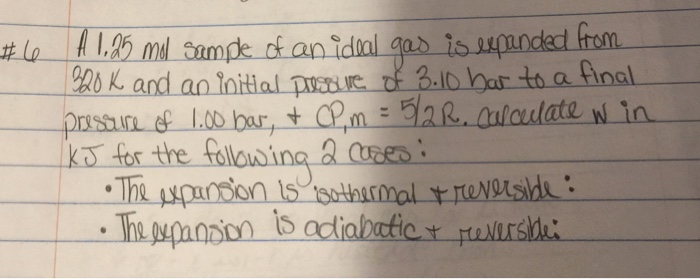 #6 A 1.25 mol sample of an ideal gas is expanded from
320 K and an initial pressure of 3.10 bar to a final
pressure of 1.00 bar, + CP,m = 5/2R. Calculate w in
kJ for the following 2 cases:
• The expansion is isothermal + reversible:
• The expansion is adiabatic + reversible: